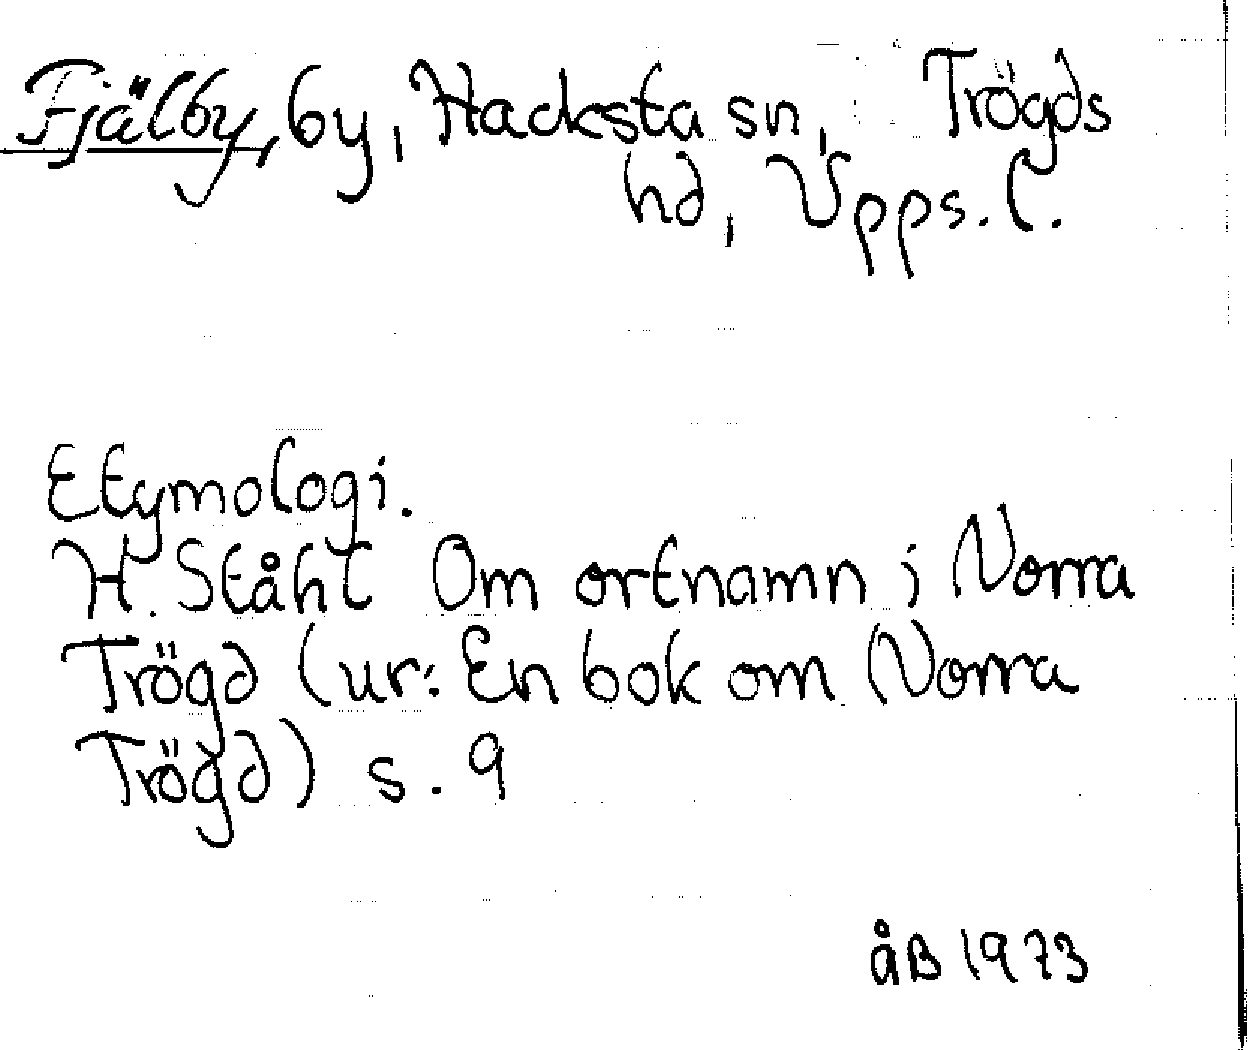 Fjälby, by, Hacksta sn, Trögds
hd, Upps. l.
Etymologi.
H. Ståhl Om ortnamn i Norra
Trögd (ur: En bok om Norra
Trögd) s. 9
åB 1973